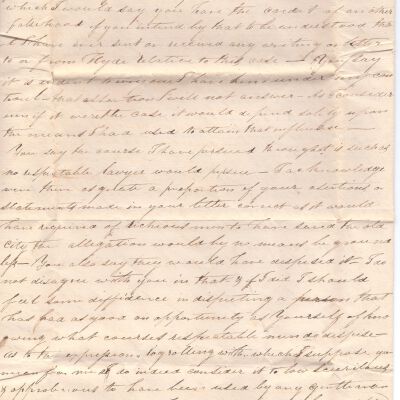 which I would say you have the credit of another
falsehood if you intend by that to be understood that
I have ever sent or received any writing or letter
to or from Hyde relative to this case — You say
it is and I have him under my con
trol — that allegation I will not answer — As I consider
even if it were the case it would depend solely upon
the means I had used to attain that influence —
You say the course I have pursued throughout is such as
no respectable lawyer would pursue — I acknowledge
were there as great a proportion of your assertions or
statements made in your letter correct as it would
have required of righteous men to have saved the old
City the allegation would by no means be ground
less — You also say they would have despised it — I do
not disagree with you in that & if I did I should
feel some diffidence in disputing a person that
has had as good an opportunity as yourself of kno
wing what courses respectable men do despise —
as to the expression which I suppose you
mean for me I do indeed consider it to low scurrilous
& opprobrious to have been used by any gentleman